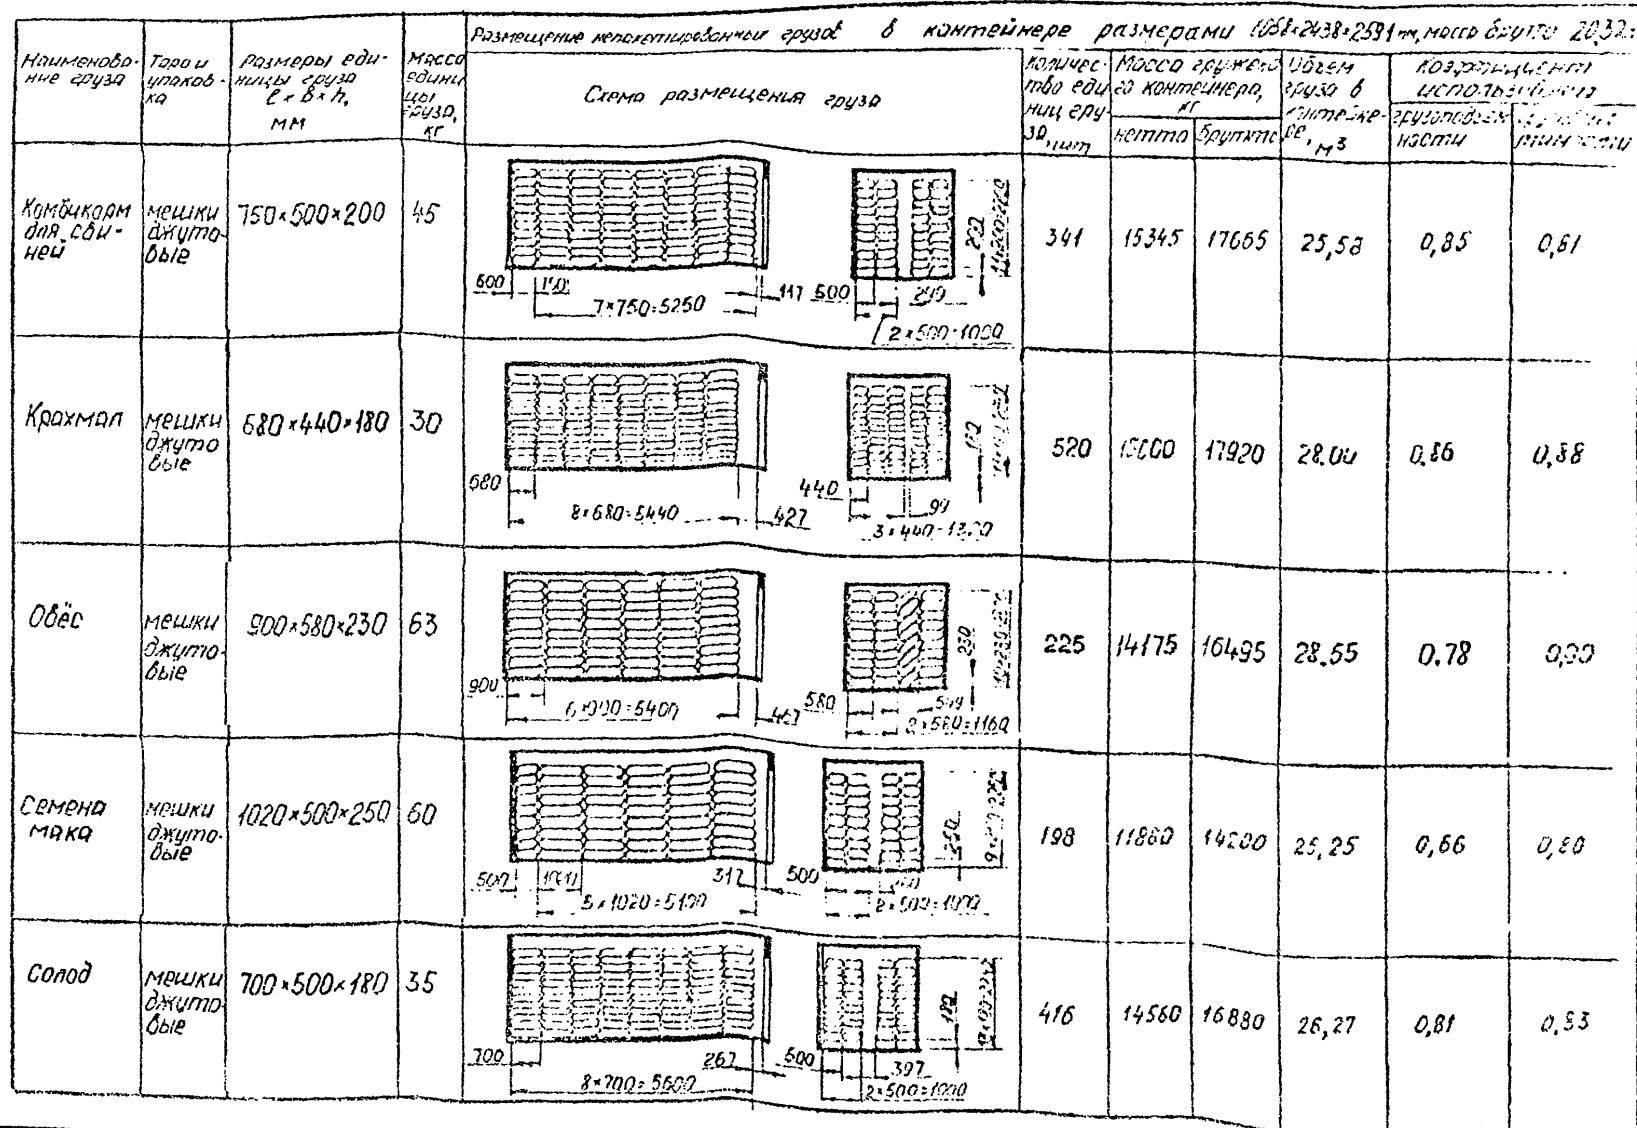 Размещение непакетированных грузов в контейнере размерами 6058×2438×2591 мм, масса брутто 20,32
Наименова-
ние груза
Тара и
упаков-
ка
Размеры еди-
ницы груза
l × b × h,
мм
Масса
едини
цы
груза,
кг
Схема размещения груза
Количес-
тво еди
ниц гру-
за, шт
Масса гружено
го контейнера,
кг
нетто
брутто
Объем
груза в
контейне-
ре, м³
Коэффициент
использования
грузоподъем
ности
Комбикорм
для сви-
ней
мешки
джуто-
вые
750×500×200
45
500
750
7×750=5250
117
500
290
2×500=1000
200
11×200=2200
341
15345
17665
25,58
0,85
0,81
Крахмал
мешки
джуто
вые
680×440×180
30
680
8×680=5440
427
440
99
3×440=1320
520
15600
17920
28,00
0,86
0,88
Овёс
мешки
джуто-
вые
900×580×230
63
900
6×900=5400
467
580
599
2×580=1160
230
10×230=2300
225
14175
16495
28.55
0.78
0,90
Семена
мака
мешки
джуто-
вые
1020×500×250
60
500
5×1020=5100
317
500
2×500=1000
250
9×250=2250
198
11880
14200
25,25
0,66
0,80
Солод
мешки
джуто
вые
700×500×180
35
700
8×700=5600
267
500
397
2×500=1000
180
416
14560
16880
26,27
0,81
0,83